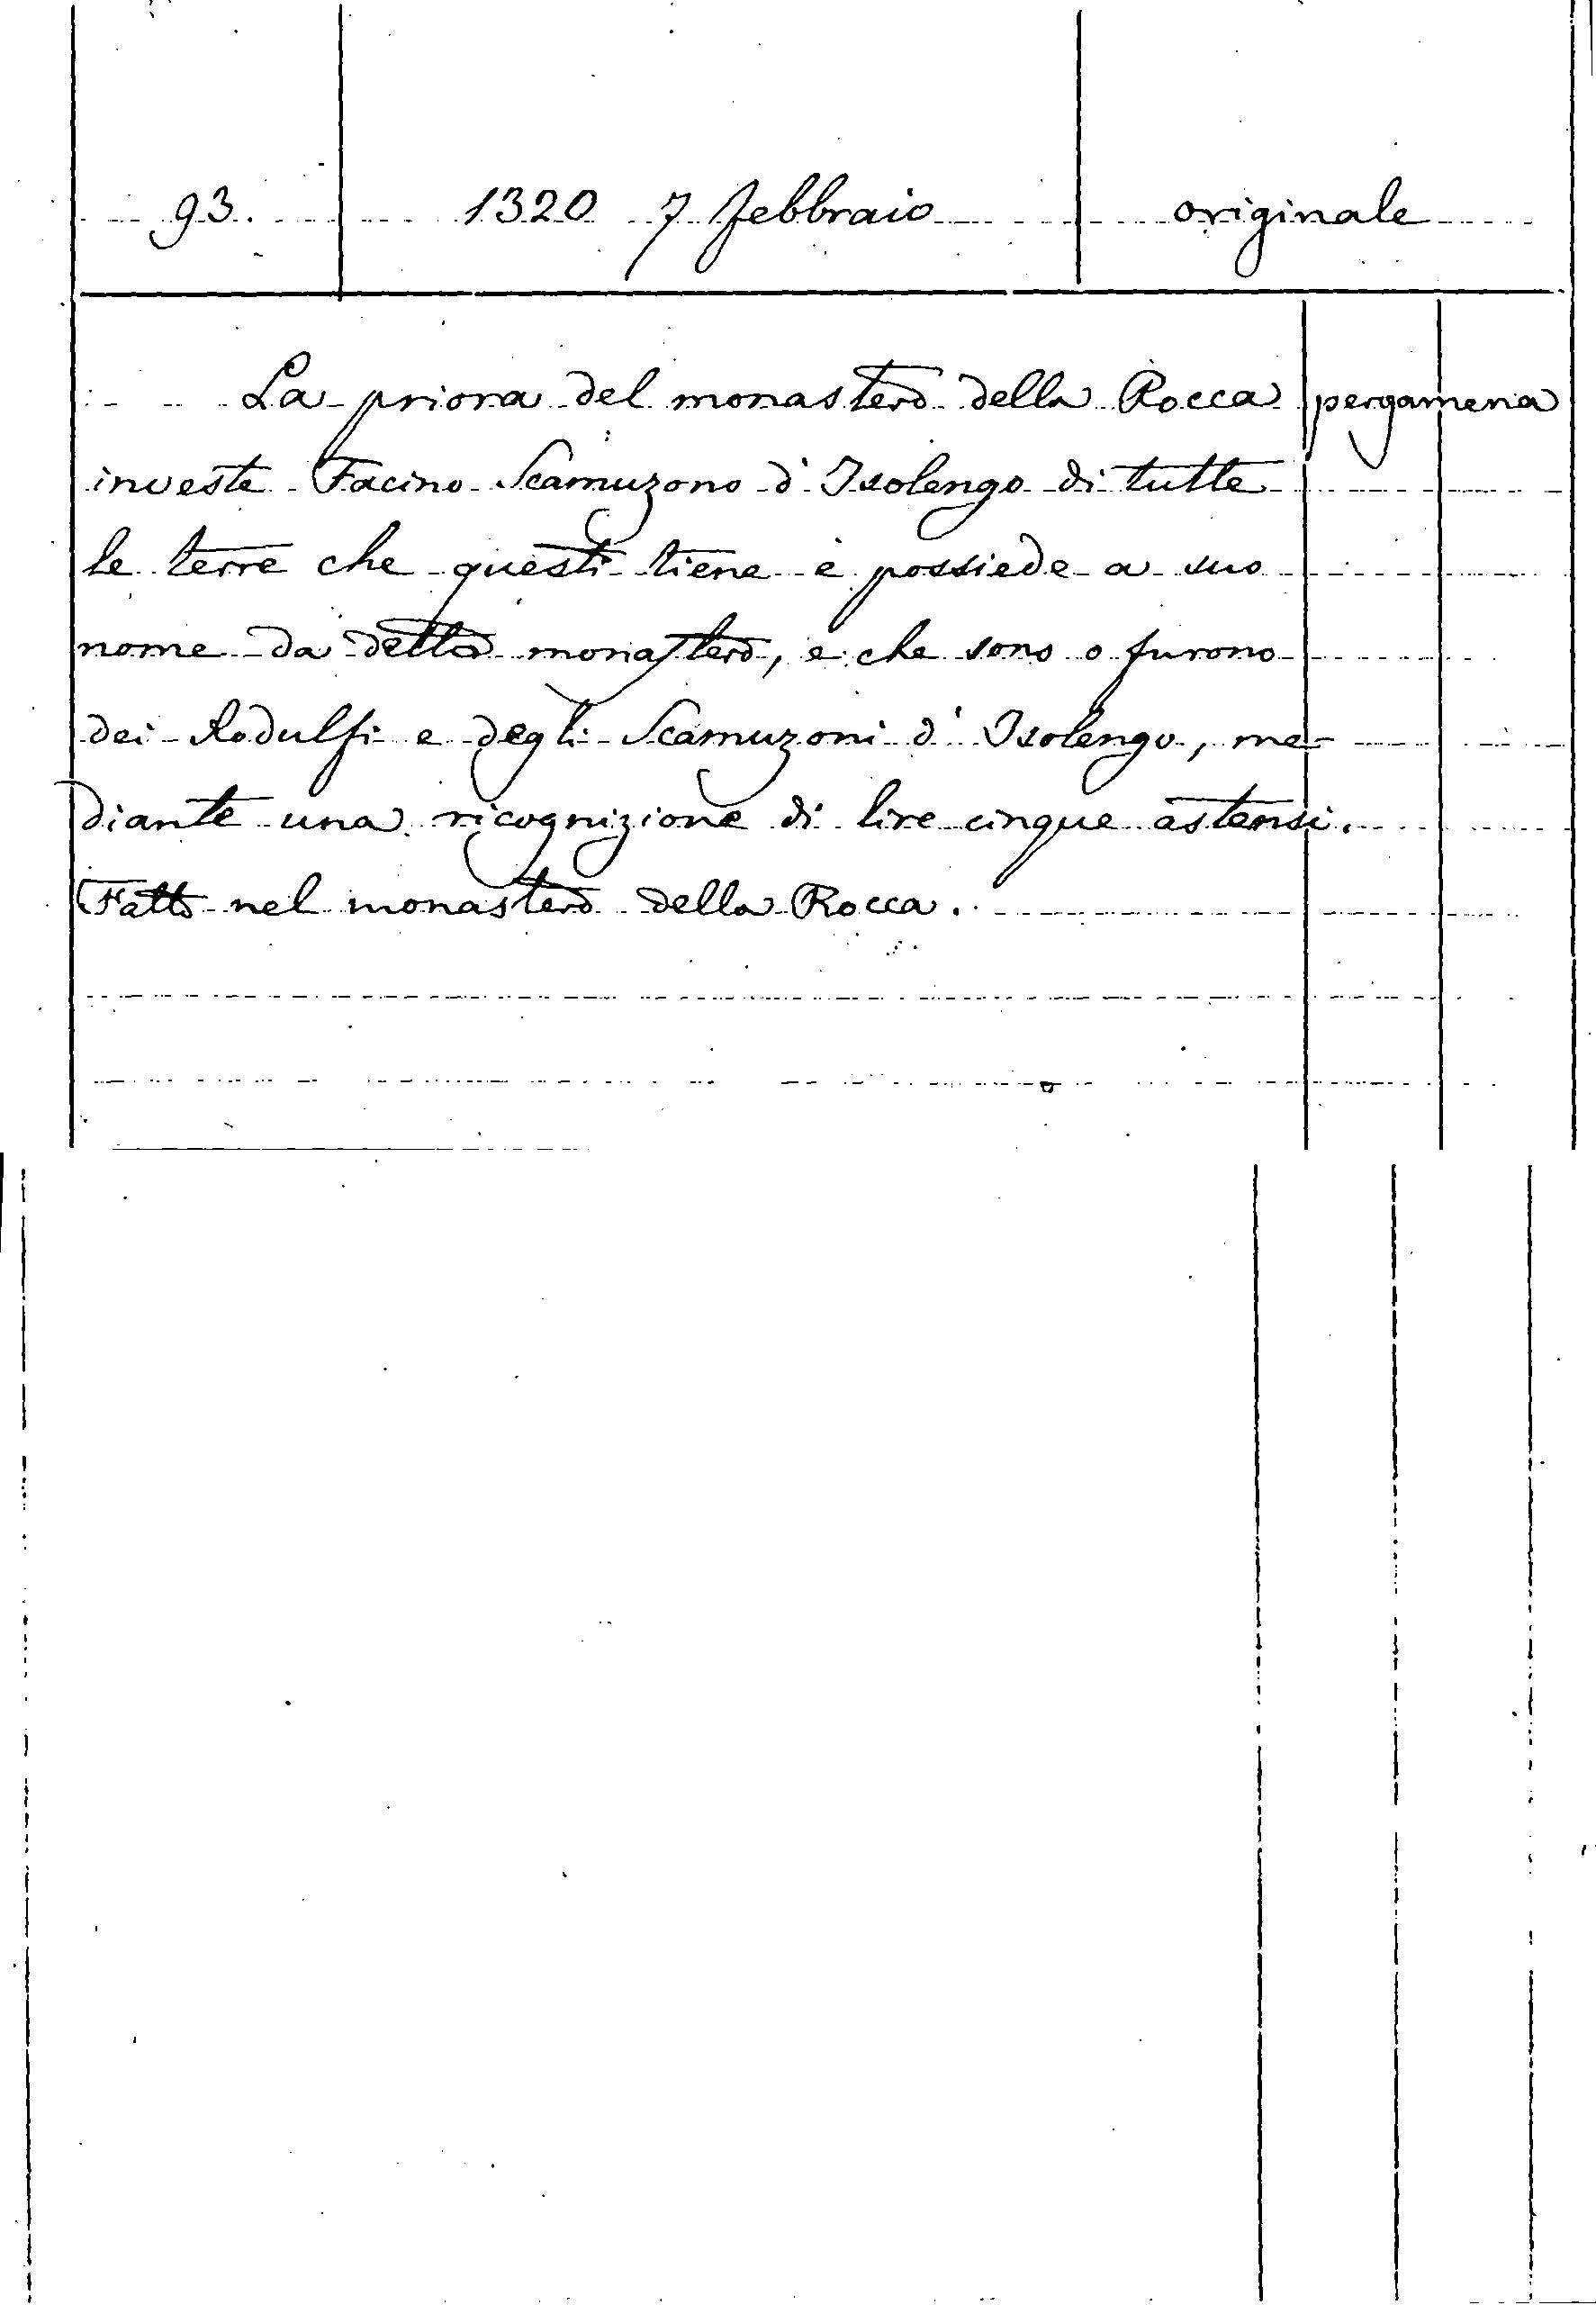 93. 1320 7 febbraio originale
La priora del monastero della Rocca pergamena
investe Facino Scamuzono d'Isolengo di tutte
le terre che questi tiene e possiede a suo
nome da detto monastero, e che sono o furono
dei Rodulfi e degli Scamuzoni d'Isolengo, me-
diante una ricognizione di lire cinque astensi.
Fatto nel monastero della Rocca.